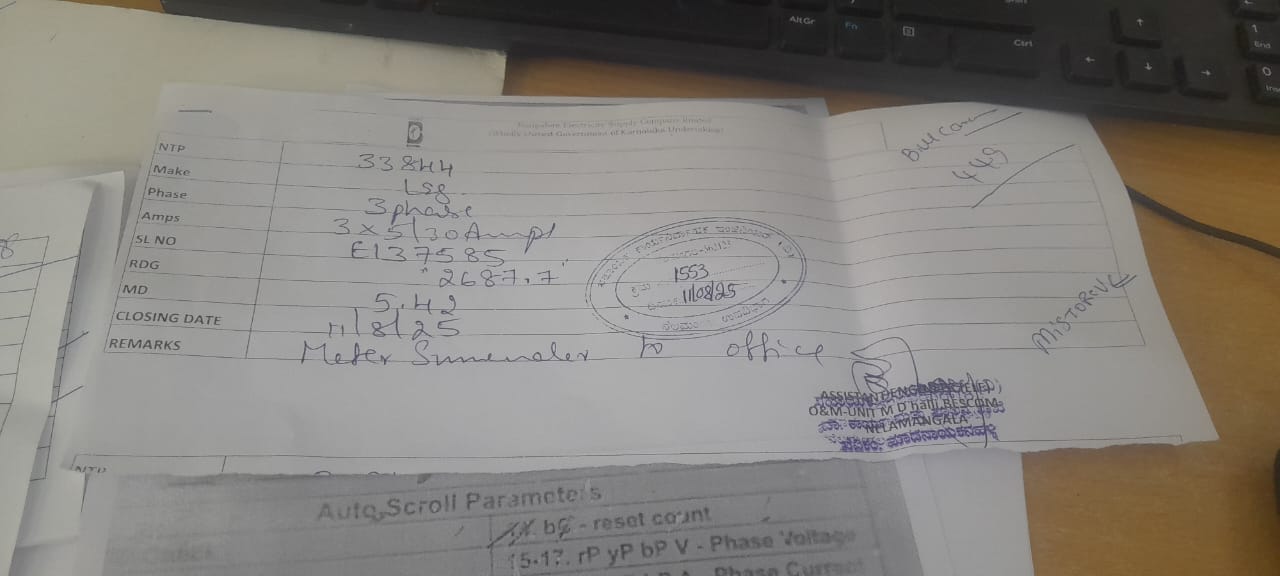 Alt Gr
Fn
Ctrl
1
End
0
Bangalore Electricity Supply Company Limited
(Wholly Owned Government of Karnataka Undertaking)
NTP 33844
Make L&g
Phase 3 phase
Amps 3 x 5/30 Ampt
SL NO E137585
RDG "2687.7"
MD 5.42
CLOSING DATE 11/8/25
REMARKS Meter Surrender to office
449
MISTOREVE
1553
11/08/25
O&M-UNIT M D halli, BESCOM
NELAMANGALA
NTP
Auto Scroll Parameters
- reset count
15-17. rP yP bP V - Phase Voltage
- Phase Current